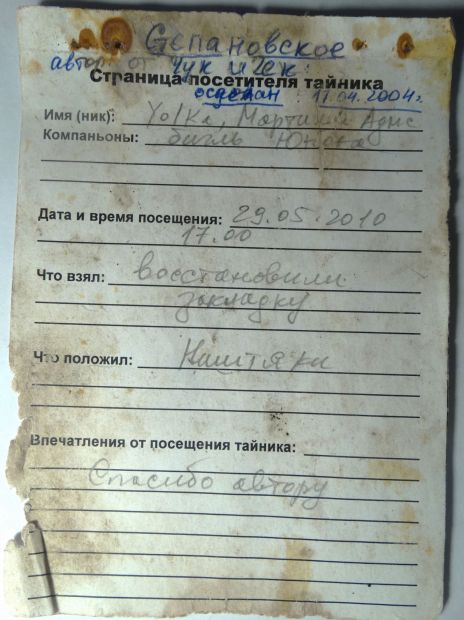 Степановское
автор от Чук и Гек
Страница посетителя тайника
сделан 11.04.2004г.
Имя (ник): Yolka, Мартин
Компаньоны: бигль
Дата и время посещения: 29.05.2010
17.00
Что взял: восстановили
закладку
Что положил: Ништяки
Впечатления от посещения тайника:
Спасибо автору